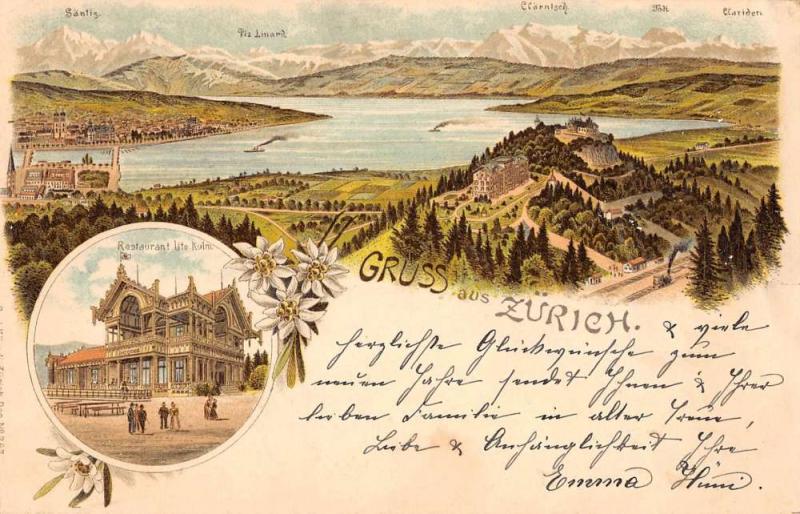 Säntis
Piz Linard
Glärnisch
Tödi
Clariden
Restaurant Uto Kulm
GRUSS aus ZÜRICH.
& viele
herzlichste Glückwünsche zum
neuen Jahre sendet Ihnen & Ihrer
lieben Familie in alter Treue,
Liebe & Anhänglichkeit Ihre
Emma Hüni.